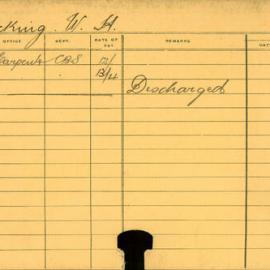 cking. W. H.
OFFICE DEPT. RATE OF PAY. REMARKS DAT
Carpentr CAS 12/
13/4
Discharged